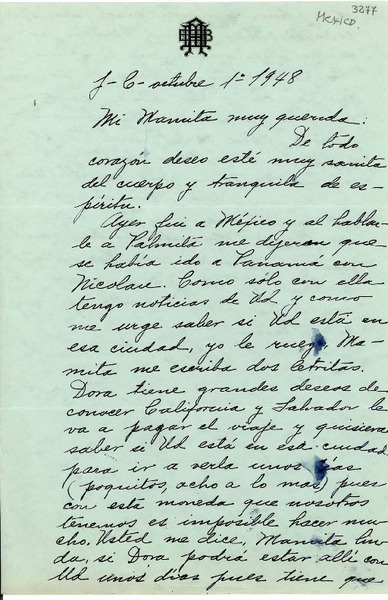 3277
Mexico.
J-C- octubre 1º 1948
Mi Mamita muy querida:
De todo
corazón deseo esté muy sanita
del cuerpo y tranquila de es-
píritu.
Ayer fui a Méjico y al hablar-
le a Palmita me dijeron que
se había ido a Panamá con
Nicolau. Como sólo con ella
tengo noticias de Ud y como
me urge saber si Ud está en
esa ciudad, yo le ruego, Ma-
mita me escriba dos letritas.
Dora tiene grandes deseos de
conocer California y Salvador le
va a pagar el viaje y quisiera
saber si Ud está en esa ciudad
para ir a verla unos días
(poquitos, ocho a lo mas) pues
con esta moneda que nosotros
tenemos es imposible hacer mu-
cho. Usted me dice, Mamita lin-
da, si Dora podrá estar allí con
Ud unos días pues tiene que